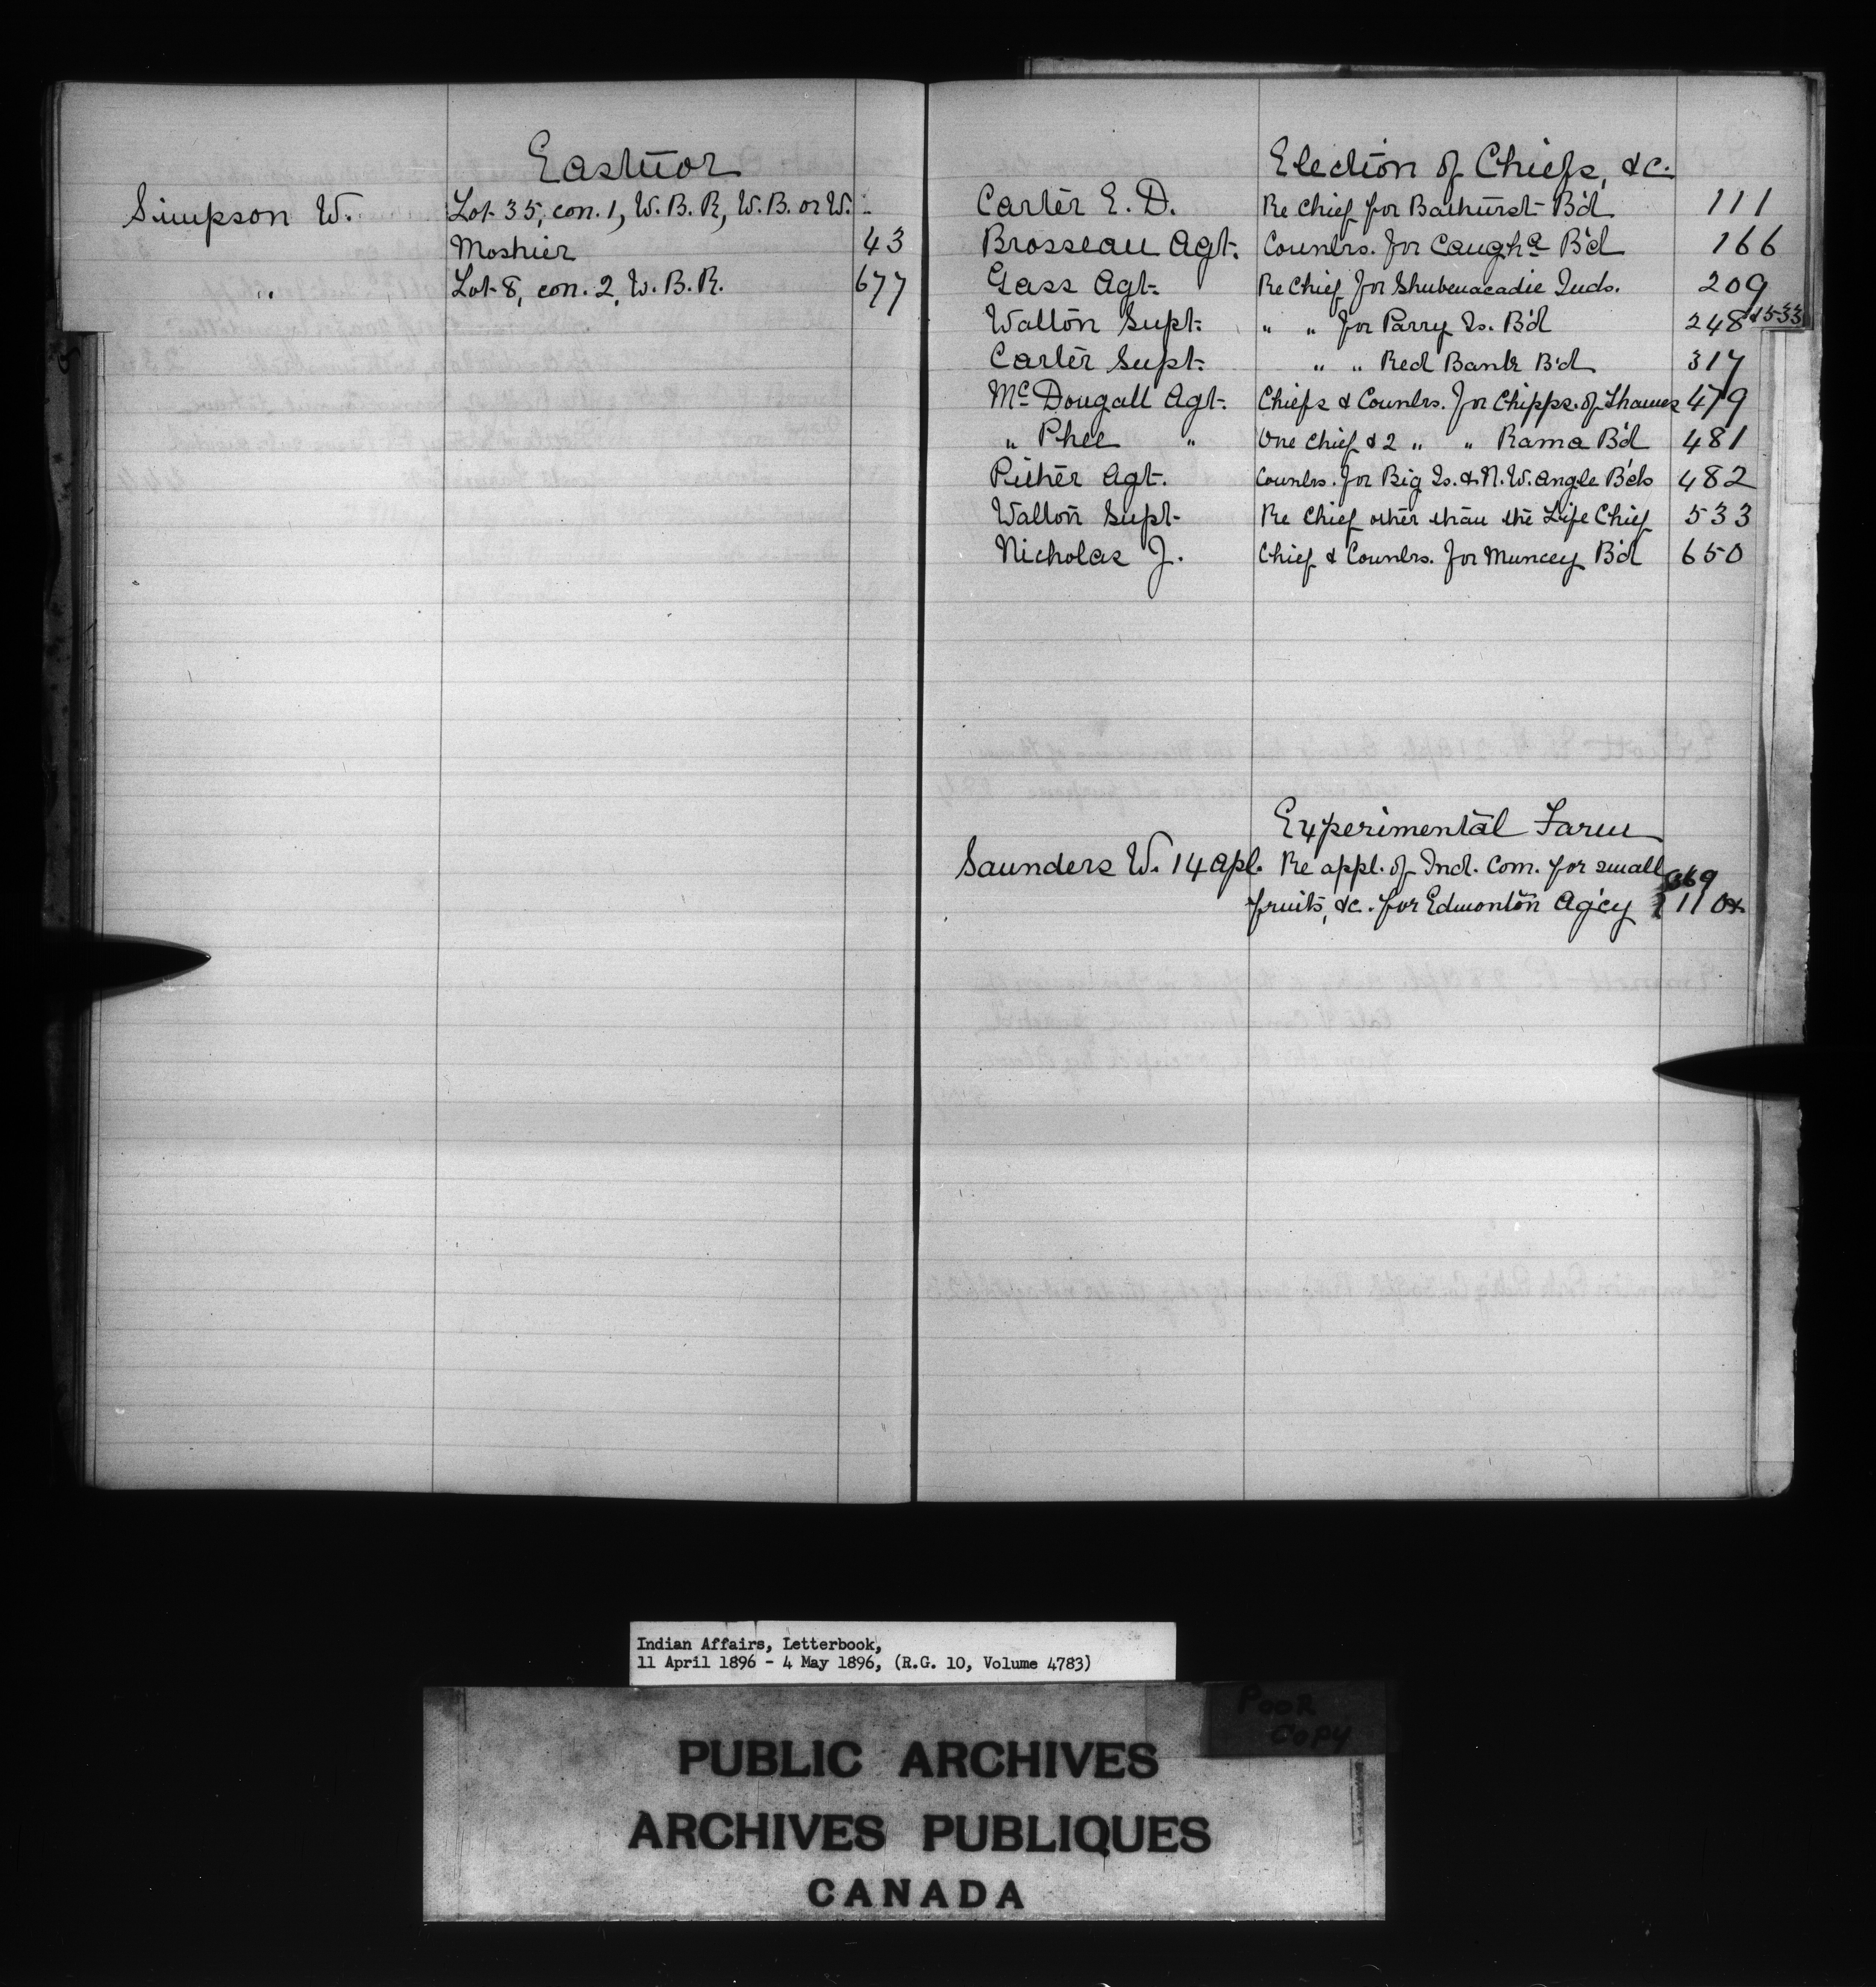 Eastnor
Simpson W. Lot 35, con. 1, W. B. R, W. B. or W.
Moshier 43
" Lot 8, con. 2, W. B. R. 677
Election of Chiefs, &c.
Carter E. D. Re Chief for Bathurst B'd 111
Brosseau Agt. Counlrs. for Caugha B'd 166
Gass Agt. Re Chief for Shubenacadie Inds. 209
Walton Supt. " " for Parry Is. B'd 248 & 533
Carter Supt. " " Red Bank B'd 317
McDougall Agt. Chiefs & Counlrs. for Chipps. of Thames 479
" Phee " One Chief & 2 " " Rama B'd 481
Pither Agt. Counlrs. for Big Is. & N. W. Angle B'ds 482
Walton Supt. Re Chief other than the Life Chief 533
Nicholas J. Chief & Counlrs. for Muncey B'd 650
Experimental Farm
Saunders W. 14 Apl. Re appl. of Ind. Com. for small 369
fruits, &c. for Edmonton Ag'cy 110
Indian Affairs, Letterbook,
11 April 1896 - 4 May 1896, (R.G. 10, Volume 4783)
POOR
COPY
PUBLIC ARCHIVES
ARCHIVES PUBLIQUES
CANADA